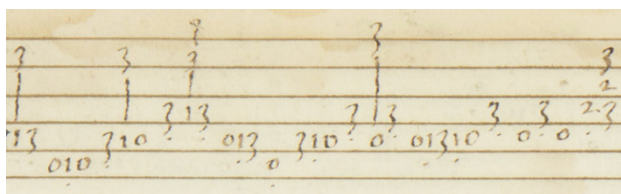 3
3 3 3 3
2
3 13 3 3 3 3 2 3
13 310 013 310 0 01310 0 0
010 0